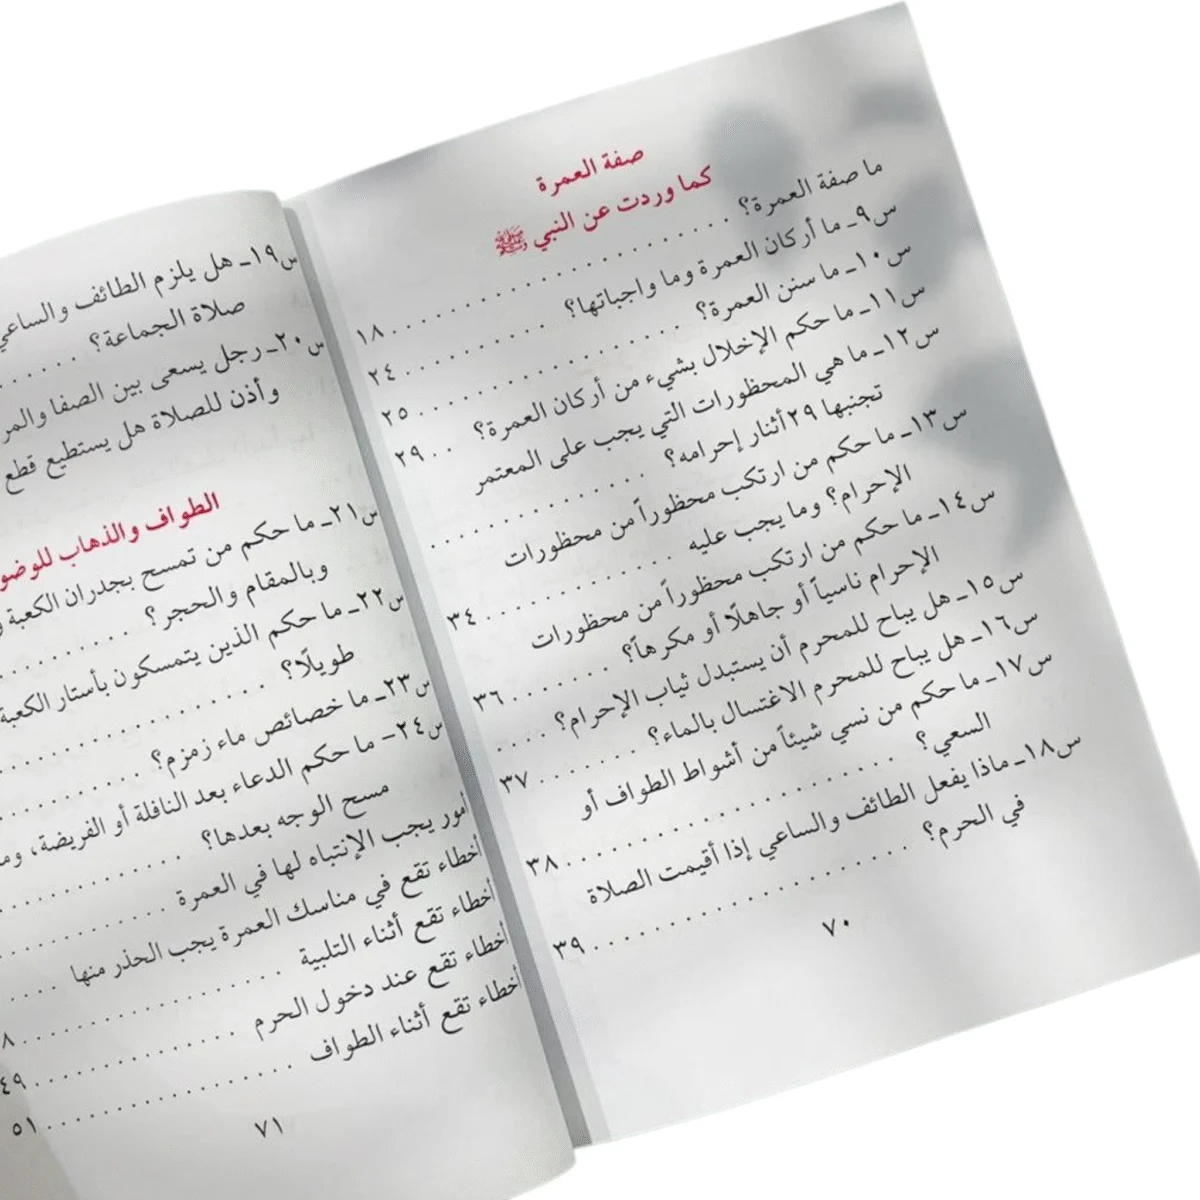 صفة العمرة
كما وردت عن النبي ﷺ
ما صفة العمرة؟ . . . . . . . . . . . . . . . . . . . . . ١٨
س٩ـ ما أركان العمرة وما واجباتها؟ . . . . . . . . . . ٢٤
س١٠ـ ما سنن العمرة؟ . . . . . . . . . . . . . . . . . ٢٥
س١١ـ ما حكم الإخلال بشيء من أركان العمرة؟ . . . ٢٩
س١٢ـ ما هي المحظورات التي يجب على المعتمر
تجنبها ٢٩ أثنار إحرامه؟ . . . . . . . . . . . . . .
س١٣ـ ما حكم من ارتكب محظوراً من محظورات
الإحرام؟ وما يجب عليه . . . . . . . . . . . . . ٣٤
س١٤ـ ما حكم من ارتكب محظوراً من محظورات
الإحرام ناسياً أو جاهلًا أو مكرهاً؟ . . . . . . . ٣٦
س١٥ـ هل يباح للمحرم أن يستبدل ثياب الإحرام؟ . . . .
س١٦ـ هل يباح للمحرم الاغتسال بالماء؟ . . . . . . . ٣٧
س١٧ـ ما حكم من نسي شيئاً من أشواط الطواف أو
السعي؟ . . . . . . . . . . . . . . . . . . . . ٣٨
س١٨ـ ماذا يفعل الطائف والساعي إذا أقيمت الصلاة
في الحرم؟ . . . . . . . . . . . . . . . . . . . ٣٩
٧٠
س١٩ـ هل يلزم الطائف والساعي
صلاة الجماعة؟ . . . . . .
س٢٠ـ رجل يسعى بين الصفا والمر
وأذن للصلاة هل يستطيع قطع
الطواف والذهاب للوضو
س٢١ـ ما حكم من تمسح بجدران الكعبة
وبالمقام والحجر؟ . . . . . . . .
س٢٢ـ ما حكم الذين يتمسكون بأستار الكعبة
طويلًا؟ . . . . . . . . . . . . . .
س٢٣ـ ما خصائص ماء زمزم؟ . . . . . . . .
س٢٤ـ ما حكم الدعاء بعد النافلة أو الفريضة، وم
مسح الوجه بعدها؟ . . . . . . . . . . . .
أمور يجب الإنتباه لها في العمرة . . . . . . . . . .
أخطاء تقع في مناسك العمرة يجب الحذر منها . . . .
أخطاء تقع أثناء التلبية . . . . . . . . . . . . . . . ٨
أخطاء تقع عند دخول الحرم . . . . . . . . . . . . ٤٩
أخطاء تقع أثناء الطواف . . . . . . . . . . . . . . ٥١
٧١